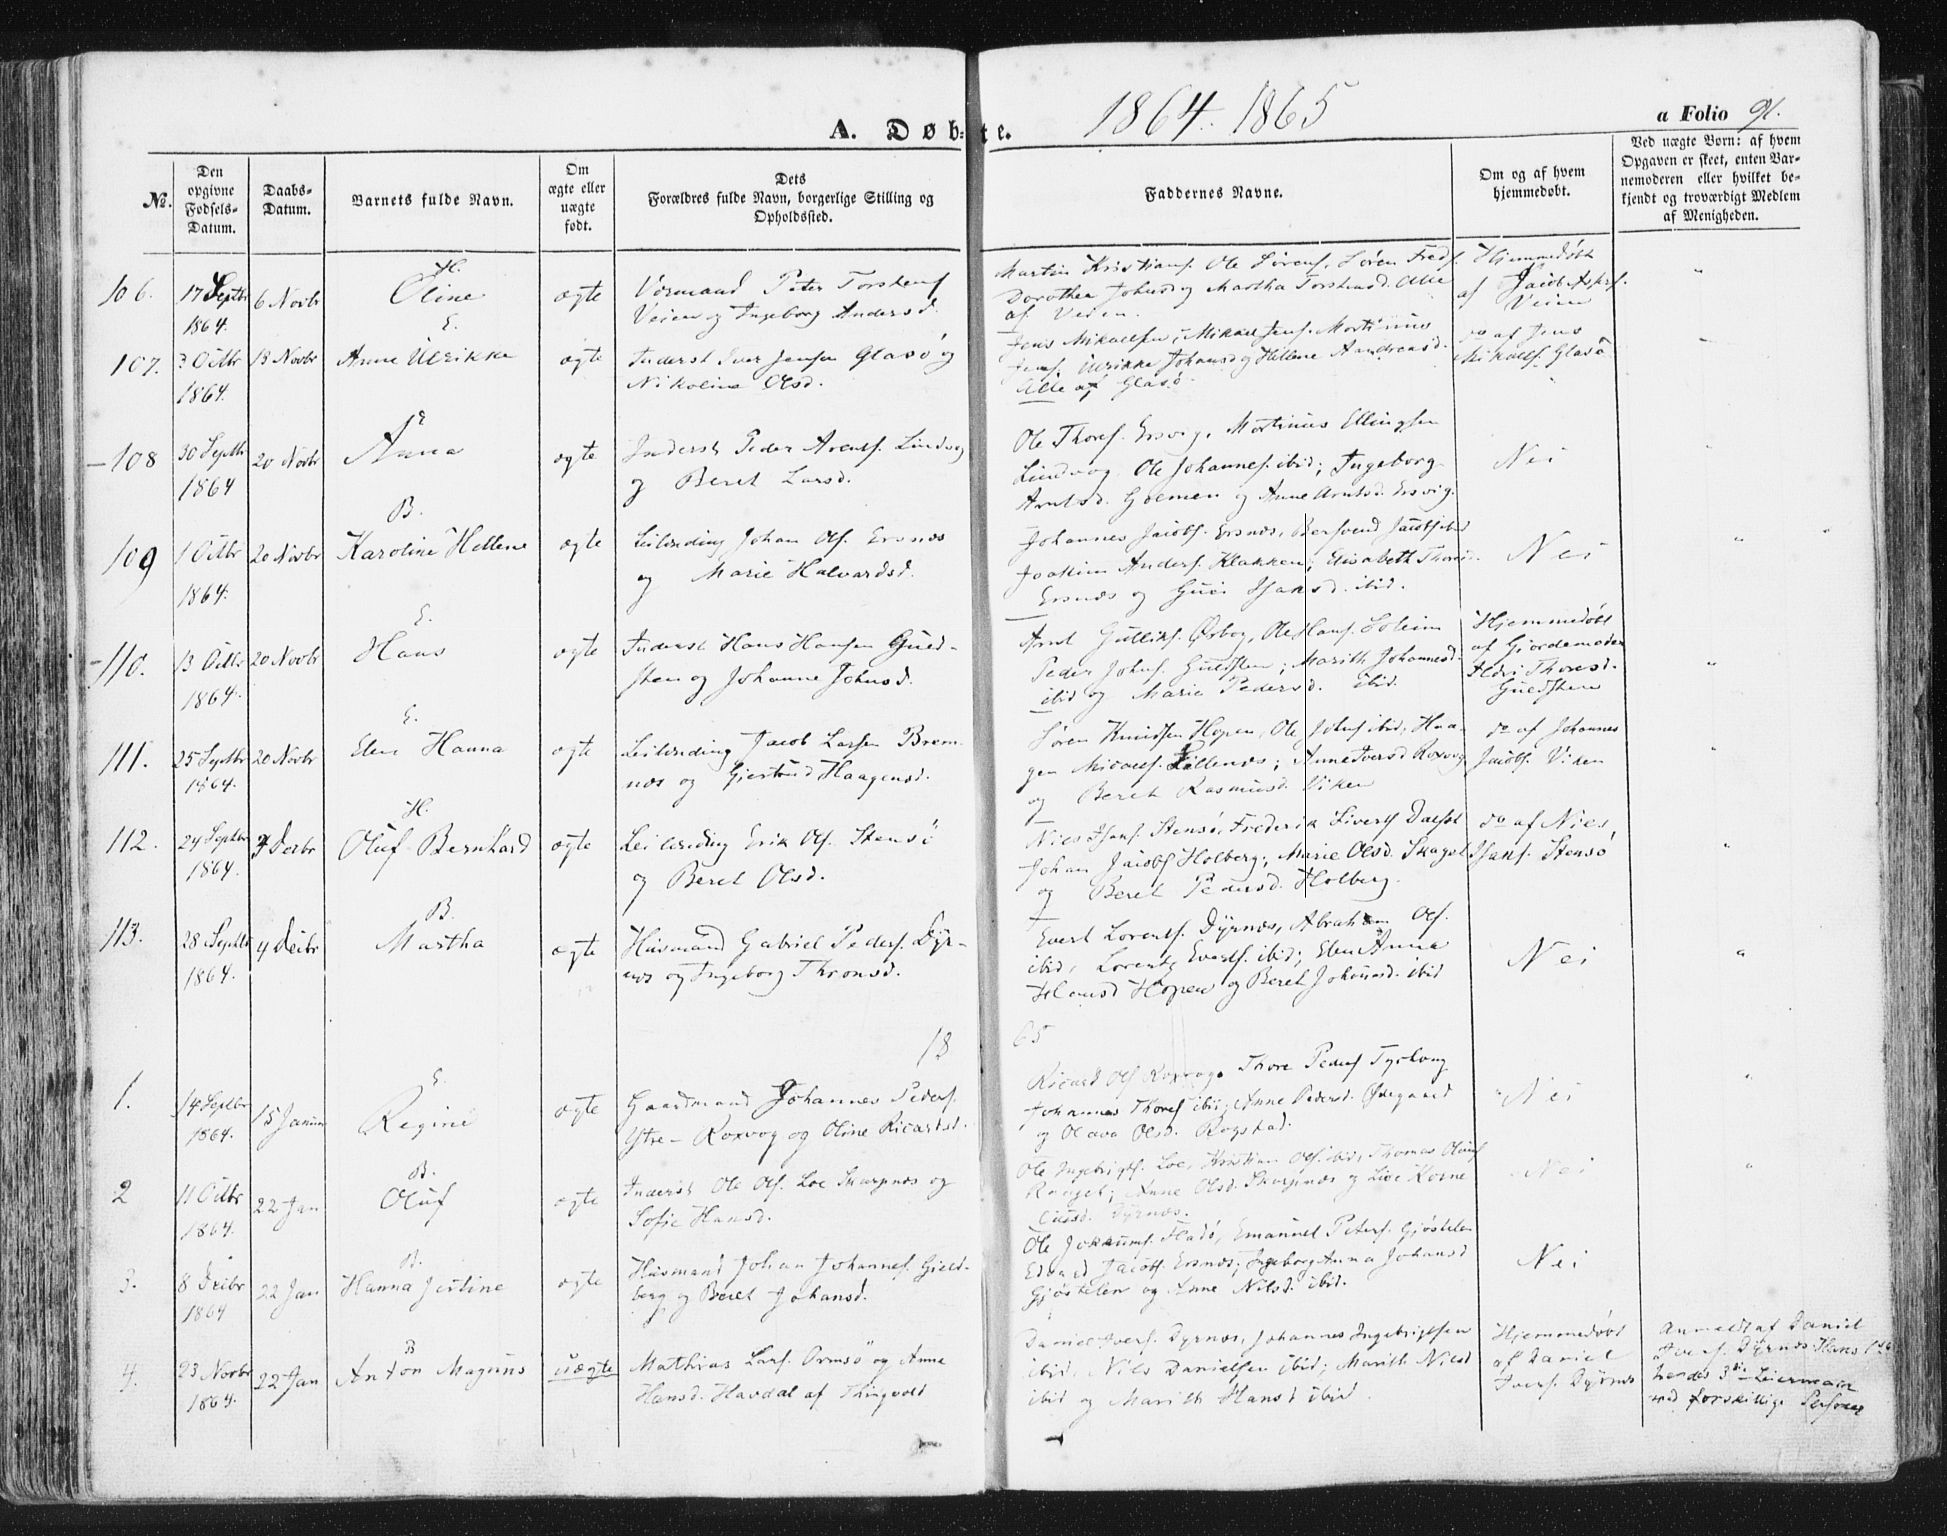 1864. 1865
A. Døbte.
a Folio 91.
№.
Den opgivne Fødsels-Datum.
Daabs-Datum.
Barnets fulde Navn.
Om ægte eller uægte født.
Dets Forældres fulde Navn, borgerlige Stilling og Opholdssted.
Faddernes Navne.
Om og af hvem hjemmedøbt.
Ved uægte Børn: af hvem Opgaven er skeet, enten Barnemoderen eller hvilket bekjendt og troværdigt Medlem af Menigheden.
106. 17 Septbr 1864. 6 Novbr
H.
Oline
ægte
Peter Torstensf
Veien og Ingeborg Andersd.
Martin Kristiansf. Ole Sørensf. Søren Fredf.
Dorothea Johnsd og Martha Torstensd. Alle
af Veien.
Hjemmedøbt
af Jacob
Veien
107. 3 Octbr 1864. 13 Novbr
E.
Anne Ulrikke
ægte
Inderst Iver Jensen Glasø og
Nikoline Olsd.
Jens Mikaelsen, Mikael Jensf. Mortinus
Jensf. Ulrikke Johansd og Hellene Andreasd.
Alle af Glasø.
do af Jens
Mikaelsf. Glasø
108 30 Septbr 1864 20 Novbr
E
Anna
ægte
Inderst Peder Arentsf. Lindvog
og Beret Larsd.
Ole Thoresf. Ersvig, Mortinus Ellingsen
Lindvog, Ole Johannesf. ibid; Ingeborg
Arntsd. Goemen og Anne Arntsd. Ersvig.
Nei
109 1 Octbr 1864. 20 Novbr
B.
Karoline Hellene
ægte
Leilænding Johan Olsf. Ersnæs
og Marie Halvardsd.
Johannes Jacobsf. Ersnæs, Bersvend Jacobsf ibid
Joakim Andersf. Klakken; Elisabeth
Ersnæs og Guri Isaksd. ibid.
Nei
110. 13 Octbr 1864. 20 Novbr
E.
Hans
ægte
Inderst Hans Hansen Guld-
sten og Johanne Johnsd.
Arnt Gulliksf. Ørbog, Ole Hansf. Soleim
Peder Johnsf. Guldsten; Marith Johannesd.
ibid og Marie Pedersd. ibid.
Hjemmedøbt
af Gjordemoder
Thoresd.
Guldsten
111. 25 Septbr 1864. 20 Novbr
E.
Elen Hanna
ægte
Leilænding Jacob Larsen Brem-
næs og Gjertrud Haagensd.
Søren Knudsen Hopen, Ole Johnsf ibid, Haa-
gen Micaelsf. Lillenæs; Anne Iversd Roxvog
og Beret Rasmusd. Viken
do af Johannes
Jacobsf. Viken
112. 24 Septbr 1864. 4 Decbr
H.
Oluf Bernhard
ægte
Leilænding Erik Olsf. Stensø
og Beret Olsd.
Niels Isaksf. Stensø, Frederik Siversf
Johan Jacobsf Holberg; Marie Olsd. Skaget
og Beret Pedersd. Holberg.
do af Niels
Isaksf. Stensø
113. 28 Septbr 1864. 4 Decbr
B.
Martha
ægte
Husmand Gabriel Pedersf. Dyr-
næs og Ingeborg Thronsd.
Evert Lorentsf. Dyrnæs, Abraham Olsf.
ibid, Lorents Evertsf. ibid; Elen Anna
Hansd Hopen og Beret Johansd. ibid
Nei
1865
1. 14 Septbr 1864. 15 Januar
E.
Regine
ægte
Gaardmand Johannes Pedersf.
Ytre-Roxvog og Oline Ricardsd.
Ricard Olsf Roxvog, Thore Pedersf
Johannes Thoresf ibid; Anne Pedersd. Øxegaard
og Olava Olsd. Rogstad.
Nei
2 11 Octbr 1864. 22 Jan
B.
Oluf
ægte
Inderst Ole Olsf. Loe Skarpnæs og
Sofie Hansd.
Ole Ingebrigtsf. Loe, Kristian Olsf. ibid, Thomas
Anne Olsd. Skarpnæs og
Dyrnæs.
Nei
3. 8 Decbr 1864 22 Jan
B.
Hanna Justine
ægte
Husmand Johan Johannesf. Gield-
berg og Beret Johansd.
Ole Jokumsf. Fladø, Emanuel Petersf. Gjøstelen
Edvard Jacobsf. Ersnæs; Ingeborg Anna Johansd
Gjøstelen og Anne Nilsd. ibid.
Nei
4. 23 Novbr 1864. 22 Jan
B
Anton Magnus
uægte
Mathias Larsf. Ormsø og Anne
Hansd. Havdal af Thingvold
Daniel Iversf. Dyrnæs, Johannes Ingebrigtsen
ibid, Nils Danielsen ibid; Marith Nilsd
ibid og Marith Hansd ibid
Hjemmedøbt
af Daniel
Iversf. Dyrnæs
Anmeldt af Daniel
Iversf. Dyrnæs Hans 1ste
hendes 3die Leiermaal
med forskillige Personer